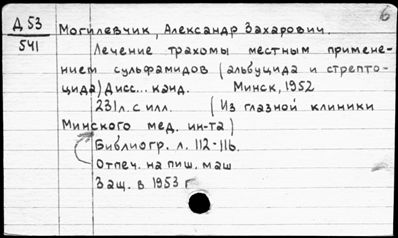 6
Д 53
541
Могилевчик, Александр Захарович.
Лечение трахомы местным примене-
нием сульфамидов (альбуцида и стрепто-
цида) Дисс... канд. Минск, 1952
231 л. с илл. (Из глазной клиники
Минского мед. ин-та)
Библиогр. л. 112-116.
Отпеч. на пиш. маш
Защ. в 1953 г